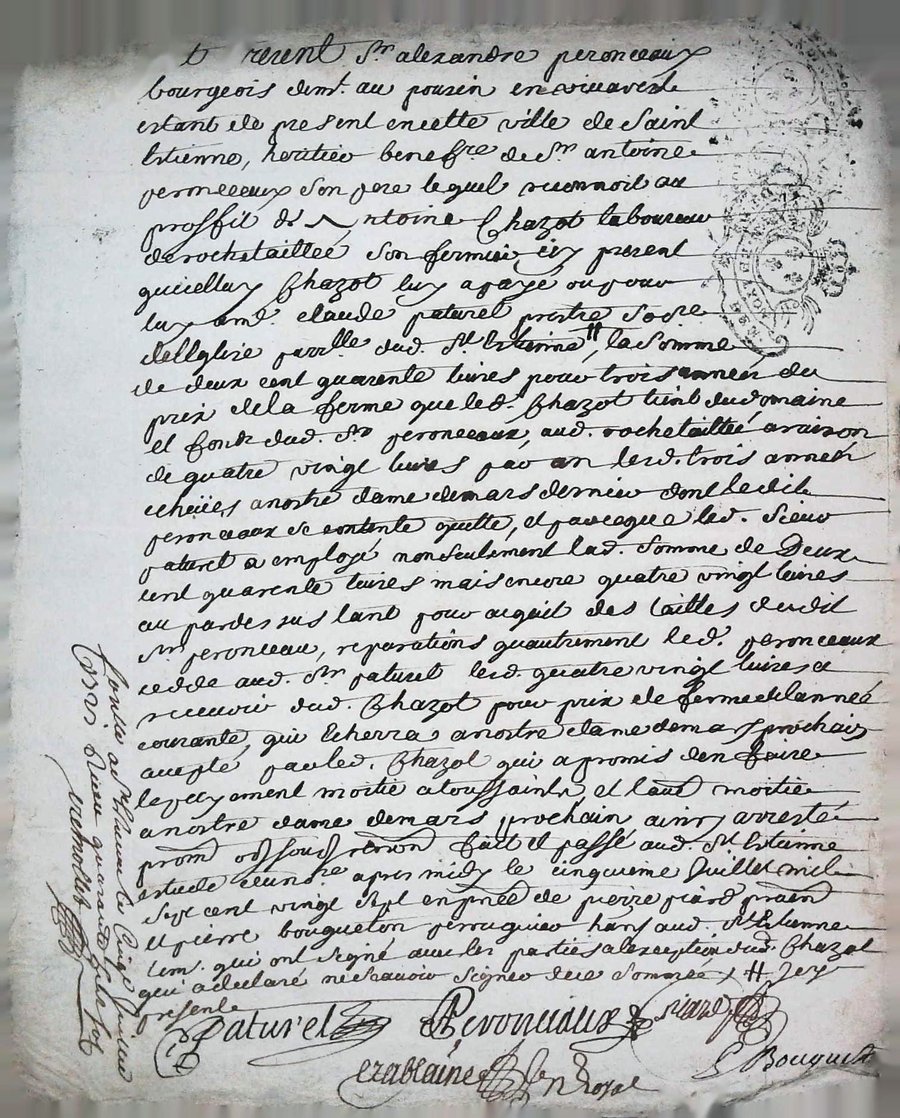 t resent Sr alexandre peronceaux
bourgeois demt. au pouzin en vivarest
estant de present encette ville de Saint
Estienne, heritier benefre de Sr antoine
peronceaux son pere lequel reconnoit au
proffit de Antoine Chazot laboureur
de rochetaillee son fermier icy present
quicelluy Chazot luy a payé ou pour
luy a mre. claude paturel prestre Socre
dellglise parrlle dud. St Estienne #, la Somme
de deux cent quarente livres pour trois années du
prix dela ferme que led. Chazot tient du domaine
et fonds dud. Sr peronceaux, aud. rochetaillée a raison
de quatre vingt livres par an lesd. trois années
echeües a nostre dame de mars dernier dont ledit
peronceaux se contente quitte, et parceque led. Sieur
paturel a employé nonseulement lad. somme de Deux
cent quarente livres mais encore quatre vingt livres
au pardessus tant pour acquit des tailles dudit
Sr peronceau, reparations quautrement led. peronceaux
cedde aud. Sr paturel lesd. quatre vingt livres a
recevoir dud. Chazot pour prix de ferme de lannée
courante, qui echerra a nostre dame de mars prochain
accepté par led. Chazot qui a promis den faire
le payement moitié a toussaints et lautre moitié
a nostre dame de mars prochain ainsy arresté
prom obl soub renon fait et passé aud. St Estienne
estude du nore apres midy le cinquieme Juillet mil
Sept cent vingt Sept en pnce de pierre piard pnien
et pierre bouqueton perruquier hans aud. St Estienne
tem. qui ont signé avec les parties a lexception dud. Chazot
qui a declaré ne scavoir signer de ce sommé # Icy
presente
Paturel Peronceaux piard
ezablaine n Royal P Bouquet
Conlle a St Etienne le Cinqe Juillet
1727 Receu quarante